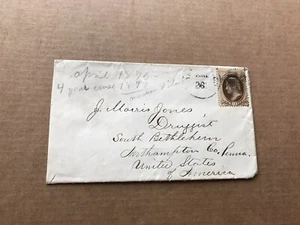 april 18
4 year
J. Morris Jones
Druggist
South Bethlehem
Northampton Co. Penna.
United States
of America